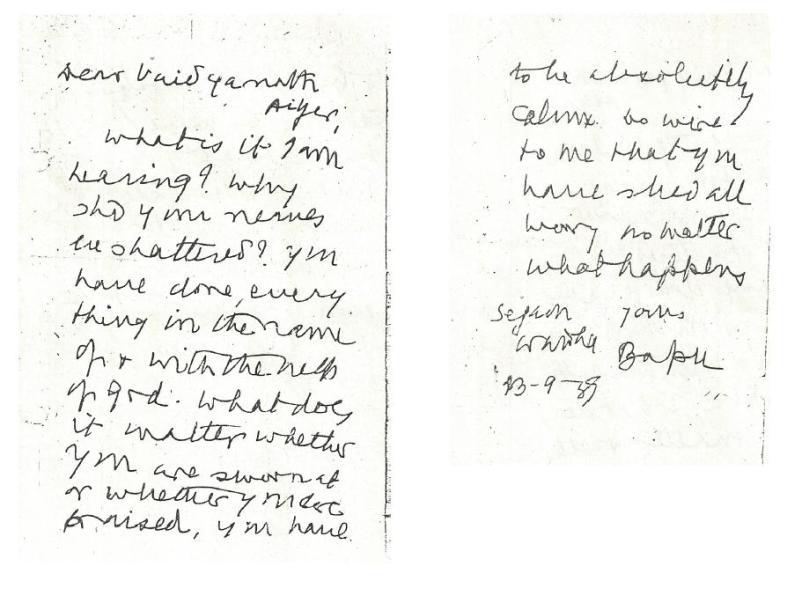 Dear Vaidyanath
Aiyer,
What is it I am
hearing? Why
shd your nerves
be shattered? You
have done every
thing in the name
of & with the help
of God. What does
it matter whether
you are sworn at
or whether you are
praised, you have
to be absolutely
calm. Do wire
to me that you
have shed all
worry no matter
what happens
Segaon yours
Wardha Bapu
13-9-39